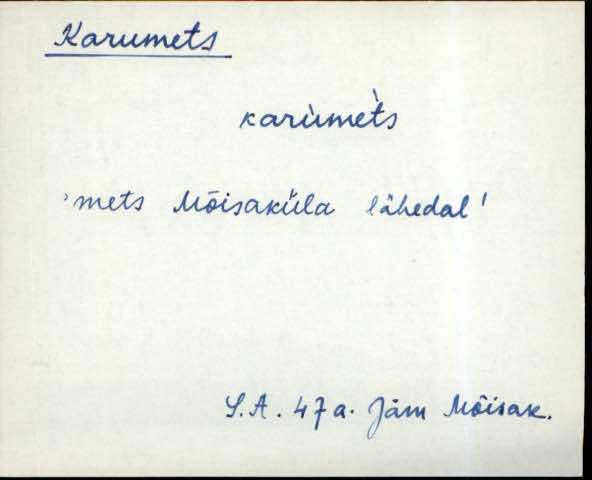 Karumets
karùmèts
'mets Mõisaküla lähedal'
S.A. 47a. Jäm Mõisak.